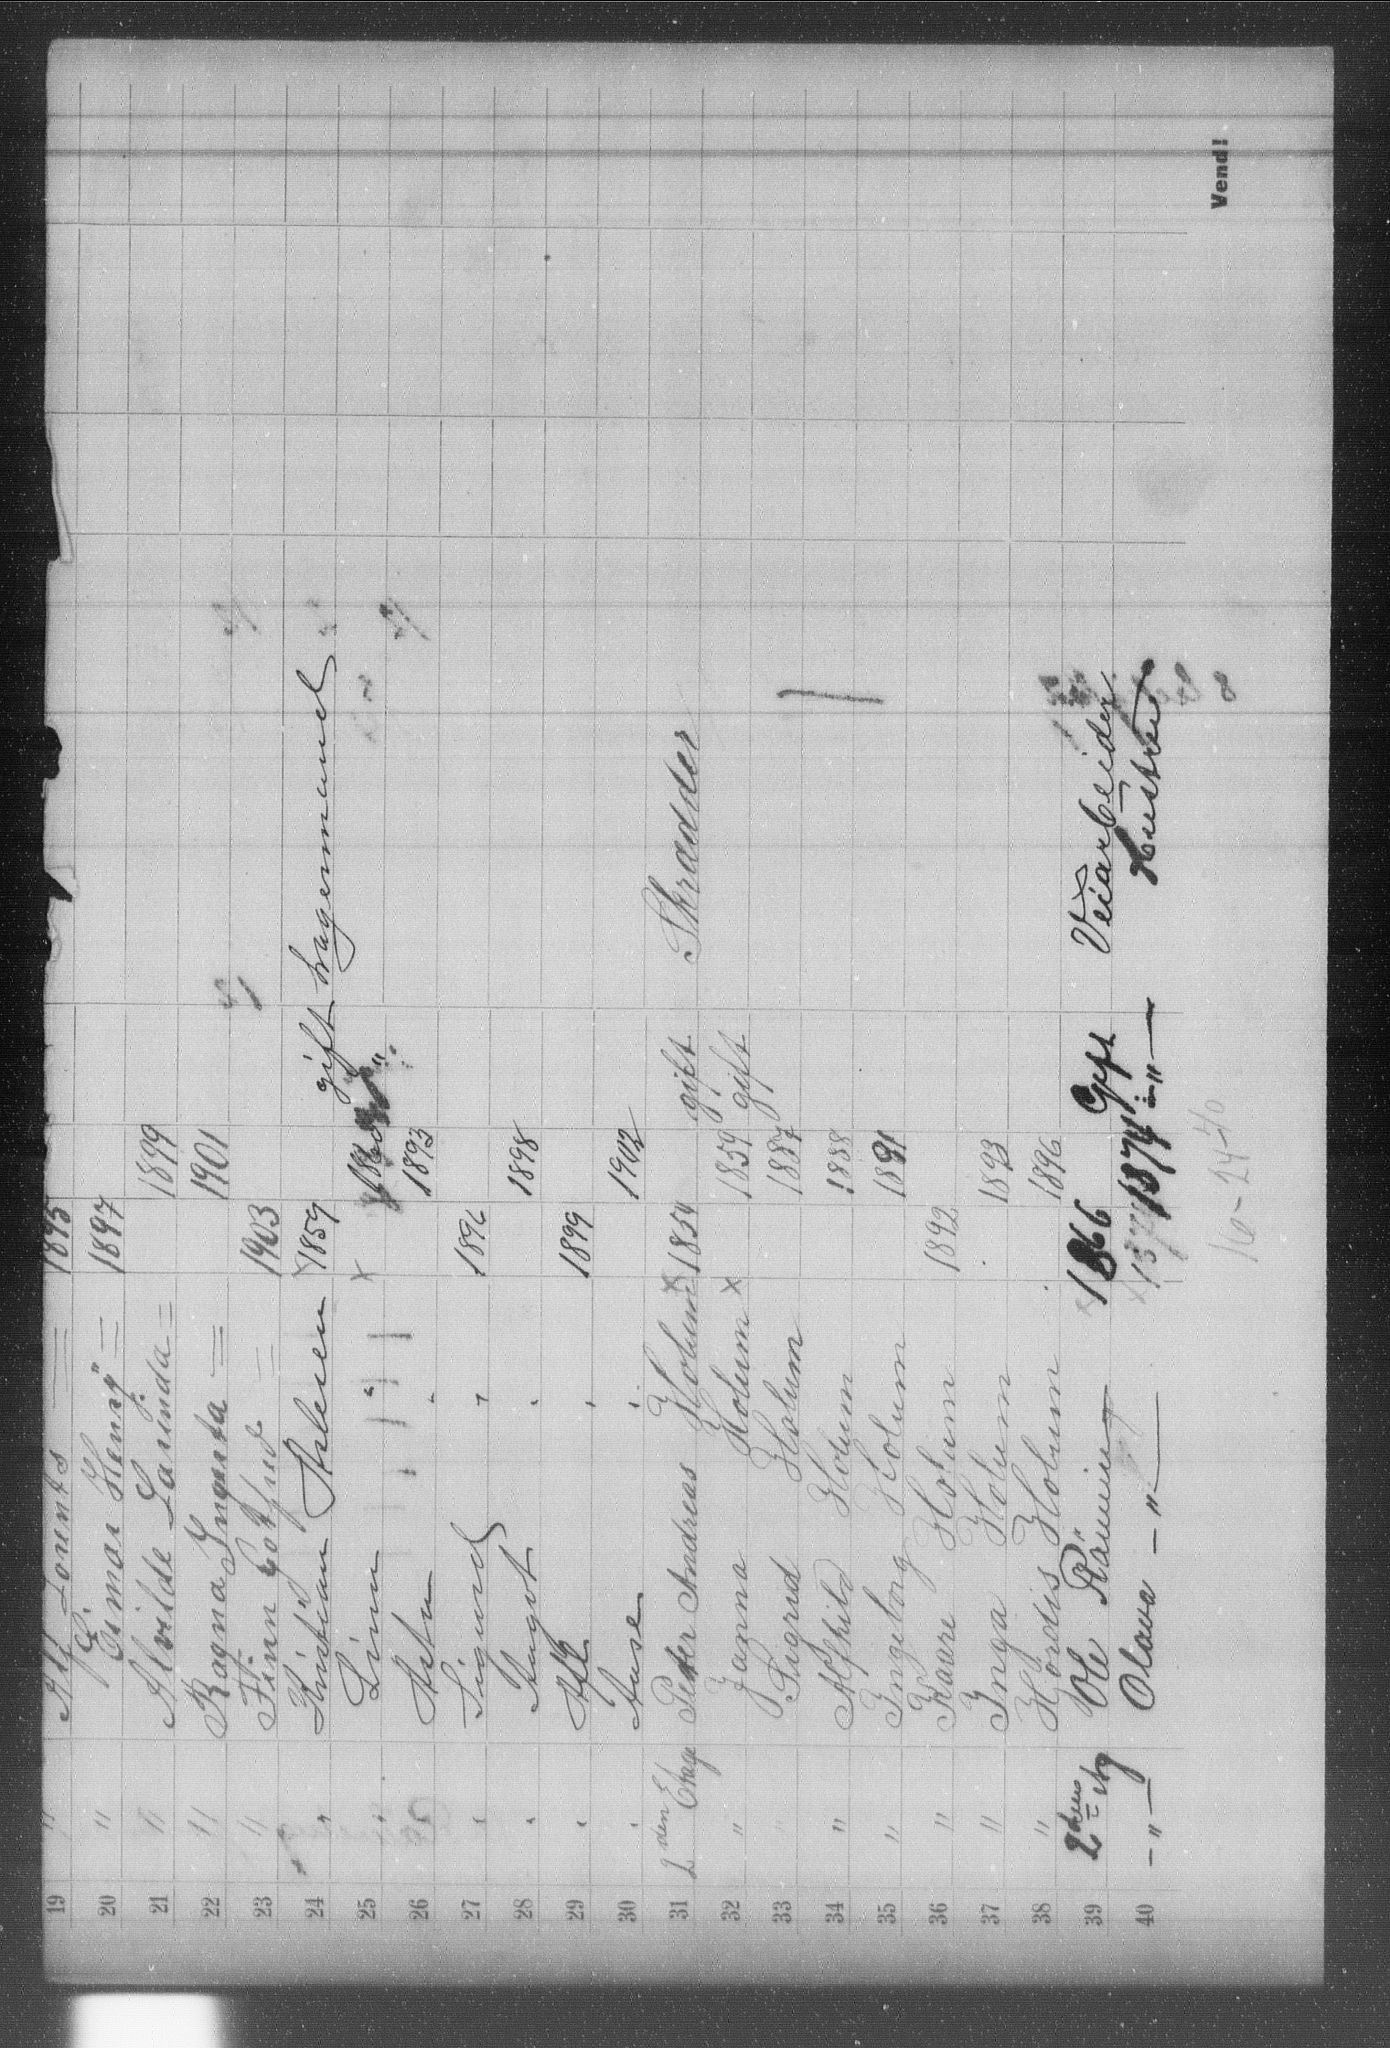 19 " Alf Lorents = 1895
20 " Einar Henry = 1897
21 " Alvilde Laurinda = 1899
22 " Ragna Ingarda = 1901
23 " Finn Gotfred = 1903
24 " Kristian Aslesen 1859 gift vagnmand
25 " Linn " x 1860 "
26 " Asta " 1893
27 " Sigurd " 1896
28 " Aagot " 1898
29 " Alf " 1899
30 " Aase " 1902
31 2den Etage Peter Andreas Holum x 1854 gift Skrædder
32 " Janna Holum x 1859 gift
33 " Sigrid Holum 1887
34 " Alfhild Holum 1888
35 " Ingeborg Holum 1891
36 " Kaare Holum 1892
37 " Inga Holum 1893
38 " Hjordis Holum 1896
39 2den Etg Ole x 1866 Gift Veiarbeider
40 - " - Olava - " - x 1874 - " - Hustru
16 - 24 - 40
Vend!